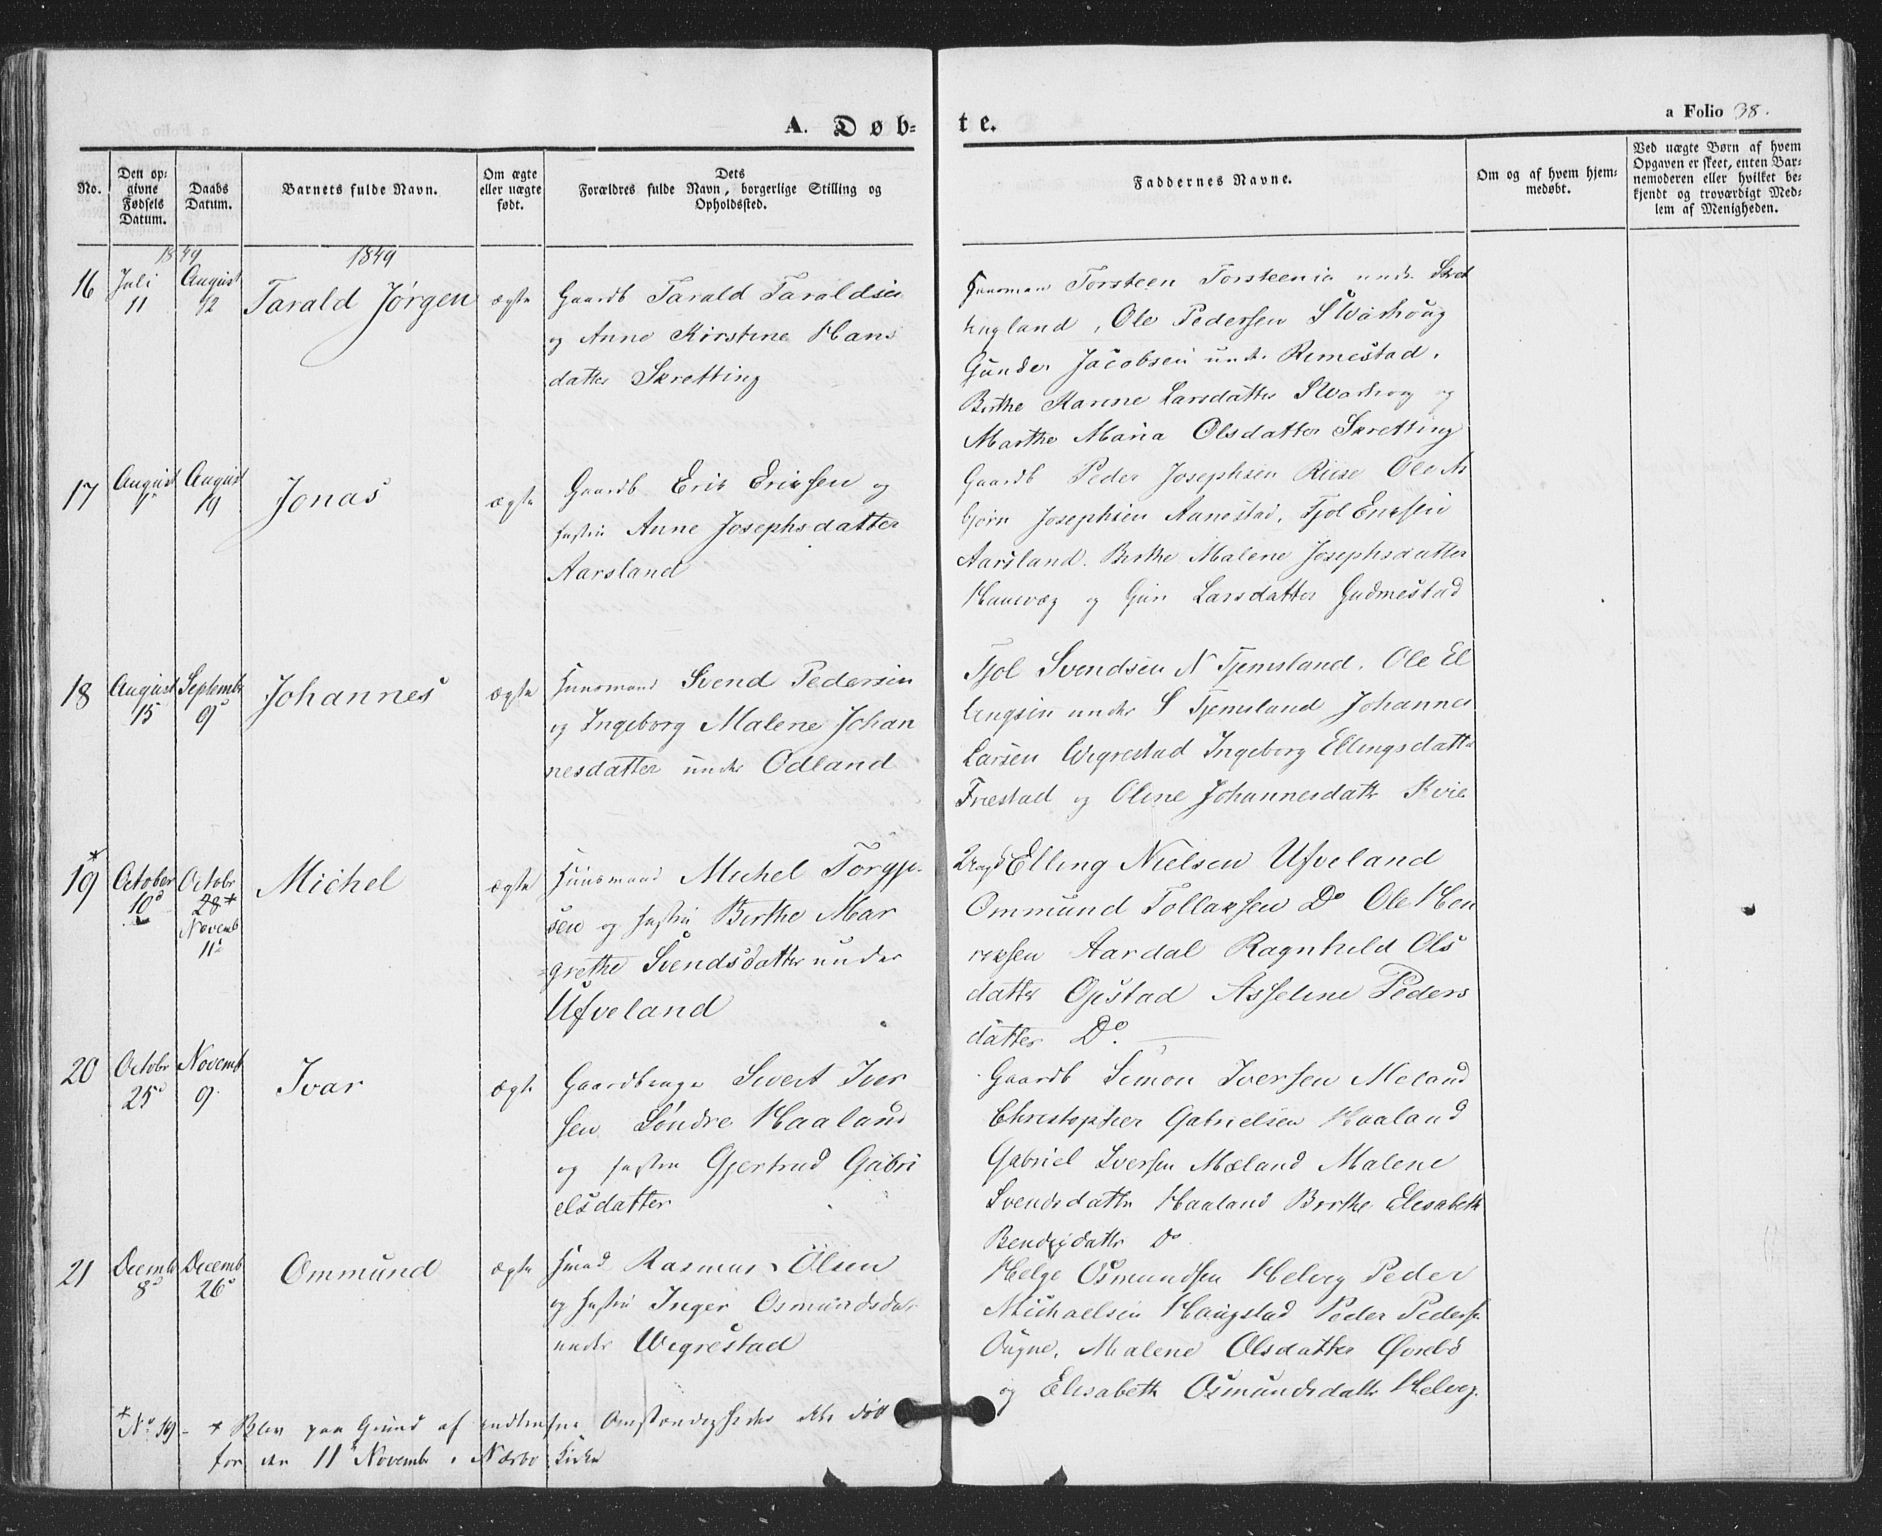 A. Døb-
te.
a Folio 38.
No.
Den op-
givne
Fødsels
Datum.
Daabs
Datum.
Barnets fulde Navn.
Om ægte
eller uægte
født.
Dets
Forældres fulde Navn, borgerlige Stilling og
Opholdssted.
Faddernes Navne.
Om og af hvem hjem-
medøbt.
Ved uægte Børn af hvem
Opgaven er skeet, enten Bar-
nemoderen eller hvilket be-
kjendt og troværdigt Med-
lem af Menigheden.
1849
1849
16
Juli
11
August
12
Tarald Jørgen
ægte
Gaardb Tarald Taraldsen
og Anne Kirstine Hans
datter Skretting
Torsteen
Ole Pedersen Swarhoug
Gunder Jacobsen under Rimestad.
Birthe Karine Larsdatter Swarhoug og
Marthe Maria Olsdatter Skretting
17
August
August
19
Jonas
ægte
Gaardb Erik Eriksen og
Hustru Anne Josephsdatter
Aarsland
Gaardb Peder Josephsen Riise Ole As
bjørn Josephsen Aanestad, Tjøl Eriksen
Aarsland. Birthe Malene Josephsdatter
og Guri Larsdatter Gudmestad
18
August
15
Septembr
9
Johannes
ægte
Huusmand Svend Pedersen
og Ingeborg Malene Johan
nesdatter under Odland
Tjøl Svendsen N Tjemsland. Ole El
lingsen under S Tjemsland Johannes
Larsen Wigrestad Ingeborg Ellingsdatter
Friestad og Oline Johannesdatter Kvie
19*
October
10d
Octobr
28*
Novemb
11d
Michel
ægte
Huusmand Michel Torgje
sen og Hustru Birthe Mar
grethe Svendsdatter under
Ufveland
Elling Nielsen Ufveland
Ommund Tollaksen Do Ole Hen
riksen Aardal Ragnhild Ols
datter Opstad Asseline Peders
datter Do.
20
Octobr
25d
Novemb
9.
Ivar
ægte
Gaardbruger Sivert Iver
sen Søndre Haaland
og Hustru Gjertrud Gabri
elsdatter
Gaardb Simon Iversen Meland
Christopher Gabrielsen Haaland
Gabriel Iversen Mæland Malene
Svendsdatter Haaland Birthe Elisabeth
Do
21
Decembr
8d
Decemb
26d
Ommund
ægte
Hmd Rasmus Olsen
og Hustru Inger Osmundsdat
under Wigrestad
Helge Osmundsen Helvig Peder
Michaelsen Haugstad Peder Pederse
Malene Olsdatter
og Elisabeth Osmundsdatter Helvig.
* No 19 - * Blev paa Grund af Omstændigheder ikke døbt
før den 11 Novembr i Nærbø Kirke